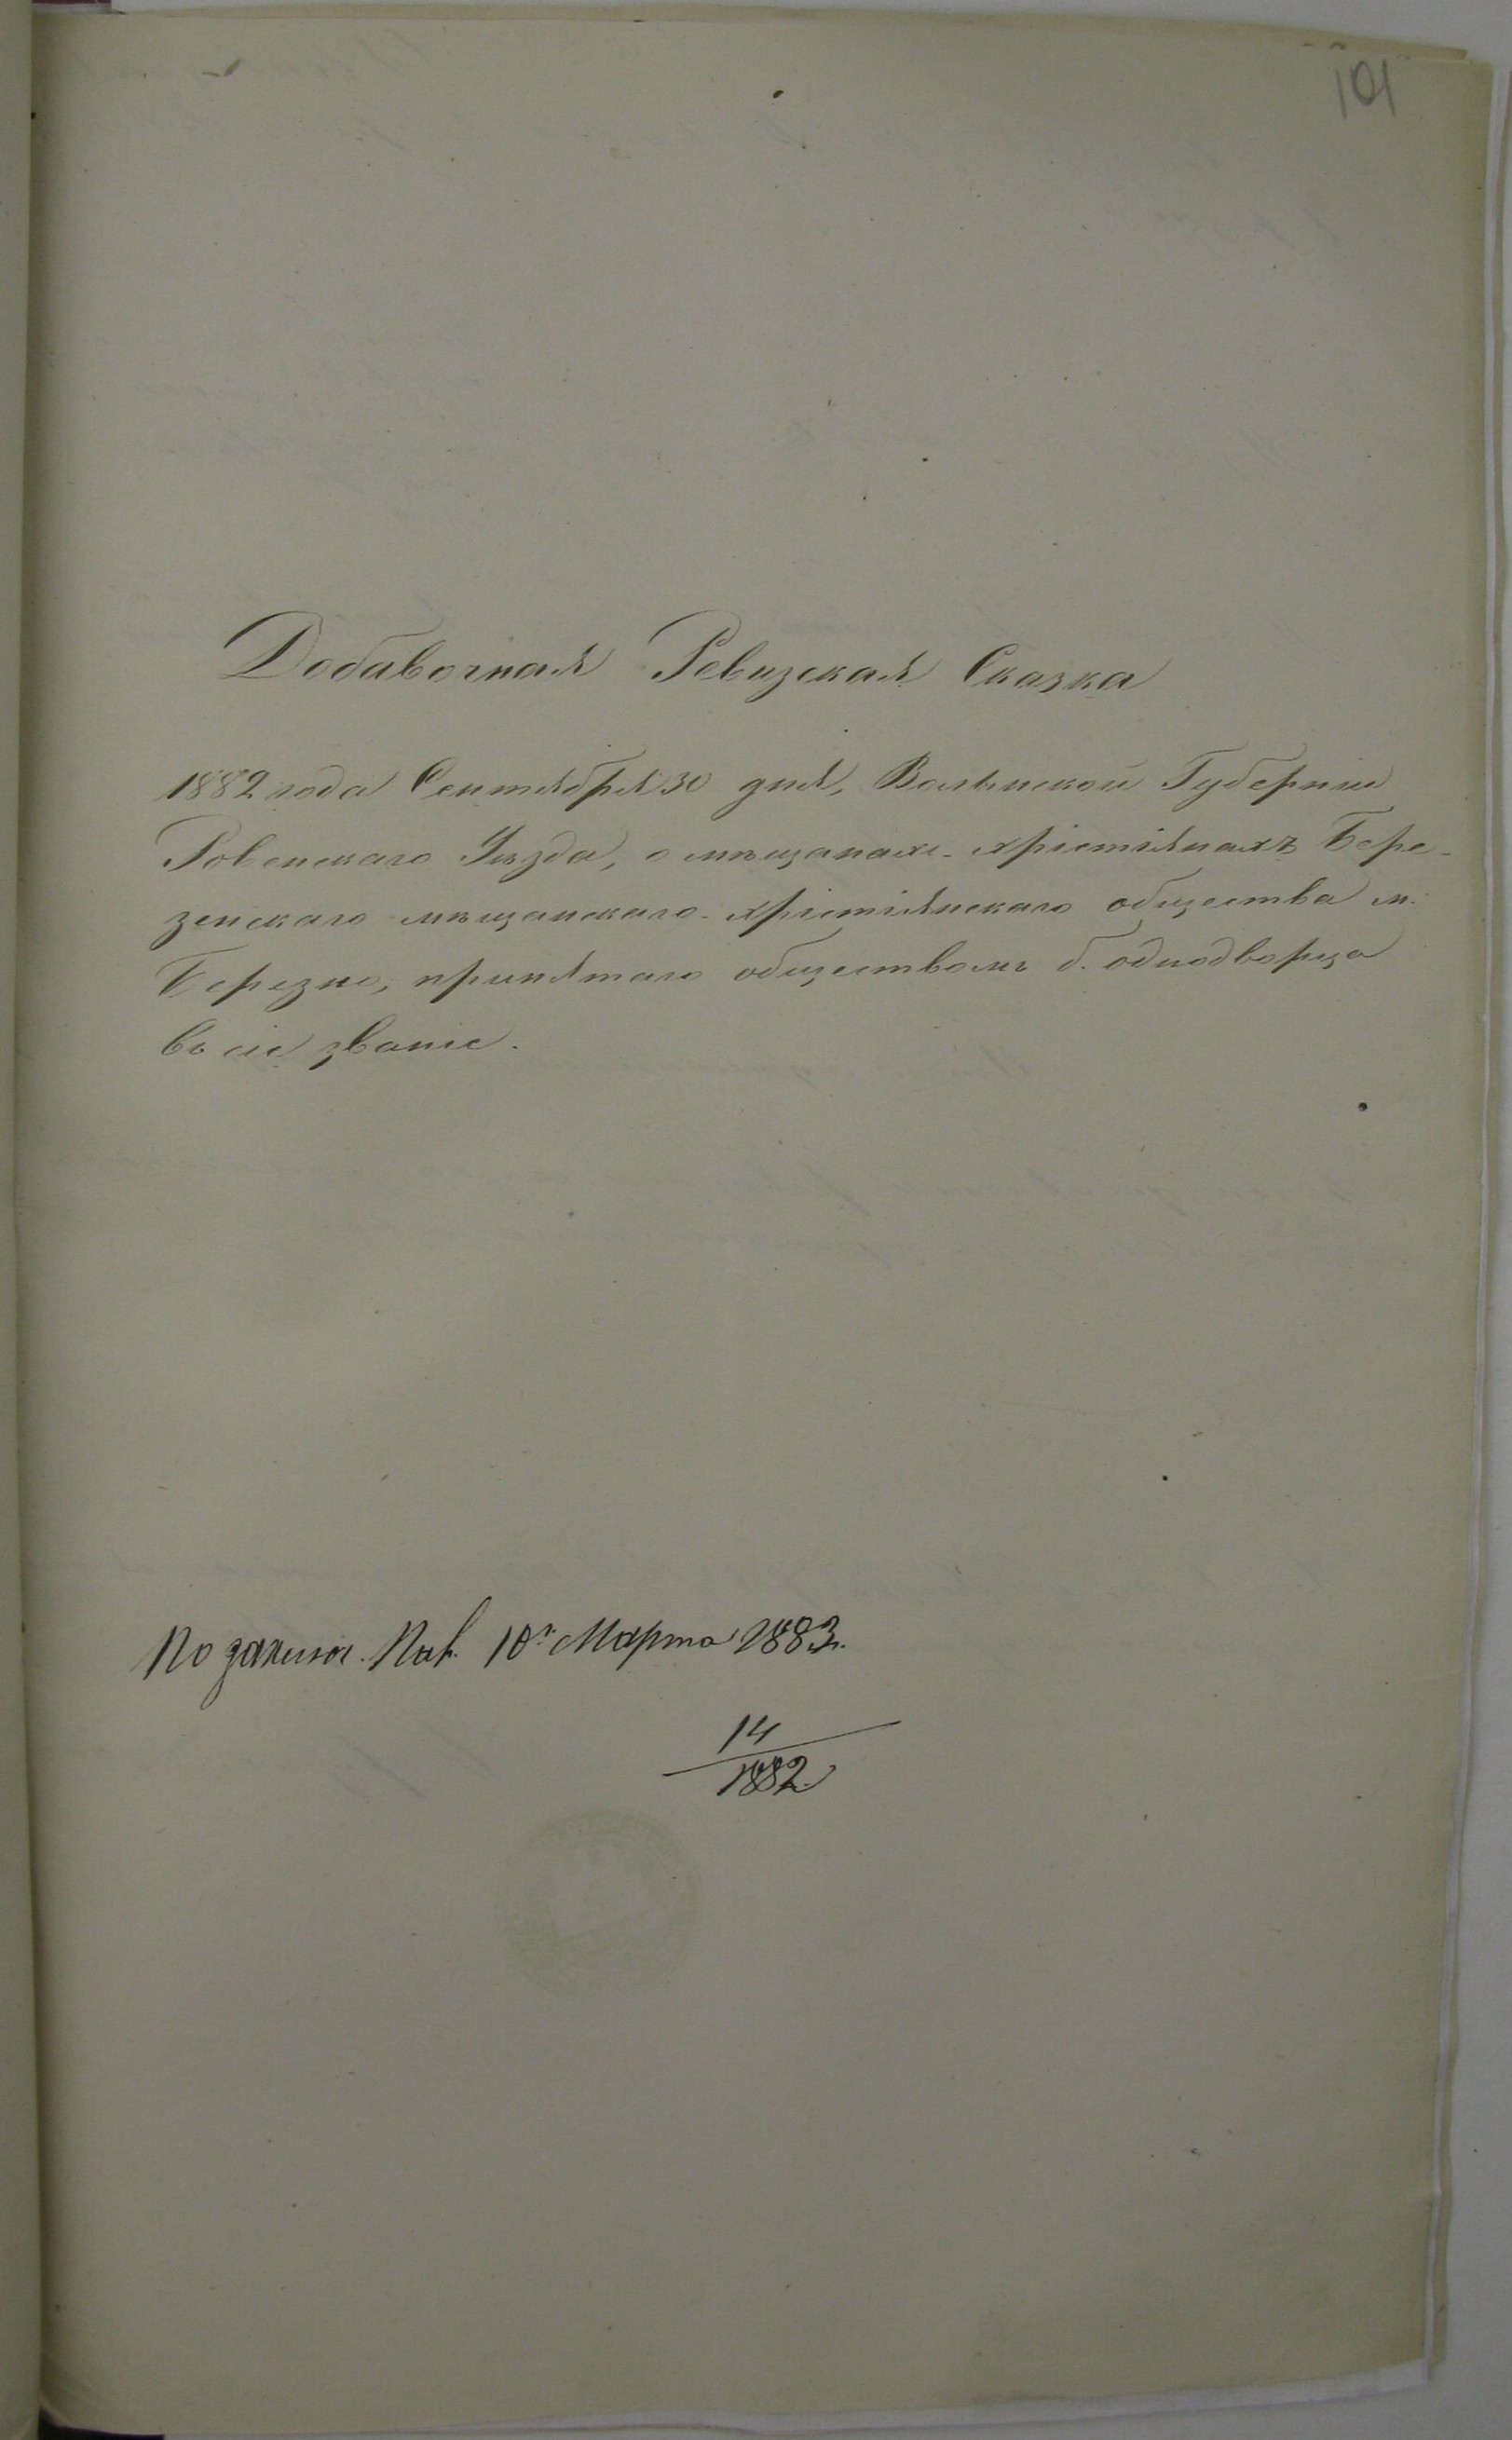 101
Добавочная Ревизская Сказка
1882 года Сентября 30 дня, Волынской Губерніи
Ровенскаго Уѣзда, о мѣщанахъ-христіянахъ Бере-
зенскаго мѣщанскаго-христіянскаго общества м.
Березно, принятаго обществомъ б. однодворца
въ сіе званіе.
По 10го Марта 1883.
14
1882.